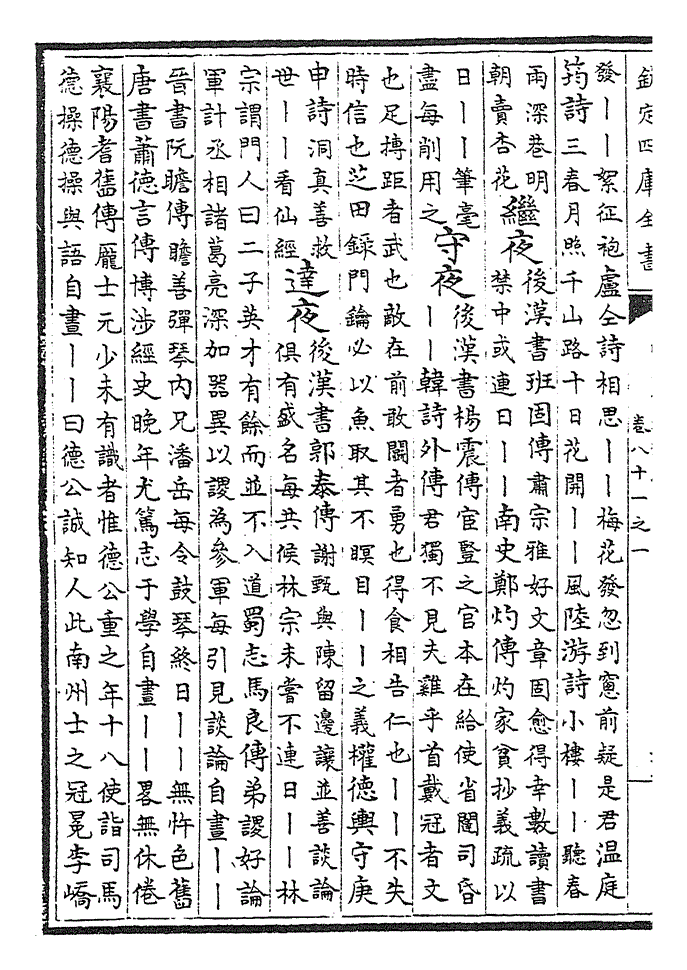 欽定四庫全書
卷八十一之一
發丨丨絮征袍盧仝詩相思丨丨梅花發忽到窻前疑是君温庭
筠詩三春月照千山路十日花開丨丨風陸游詩小樓丨丨聽春
雨深巷明
朝賣杏花
繼夜
後漢書班固傳肅宗雅好文章固愈得幸數讀書
禁中或連日丨丨南史鄭灼傳灼家貧抄義疏以
日丨丨筆毫
盡每削用之
守夜
後漢書楊震傳宦豎之官本在給使省闥司昏
丨丨韓詩外傳君獨不見夫雞乎首戴冠者文
也足搏距者武也敵在前敢鬭者勇也得食相告仁也丨丨不失
時信也芝田録門鑰必以魚取其不瞑目丨丨之義權德輿守庚
申詩洞真善救
世丨丨看仙經
達夜
後漢書郭泰傳謝甄與陳留邊讓並善談論
俱有盛名每共候林宗未嘗不連日丨丨林
宗謂門人曰二子英才有餘而並不入道蜀志馬良傳弟謖好論
軍計丞相諸葛亮深加器異以謖為參軍每引見談論自晝丨丨
晉書阮瞻傳瞻善彈琴内兄潘岳每令鼓琴終日丨丨無忤色舊
唐書蕭德言傳博涉經史晚年尤篤志于學自晝丨丨畧無休倦
襄陽耆舊傳龐士元少未有識者惟德公重之年十八使詣司馬
德操德操與語自晝丨丨曰德公誠知人此南州士之冠冕李嶠